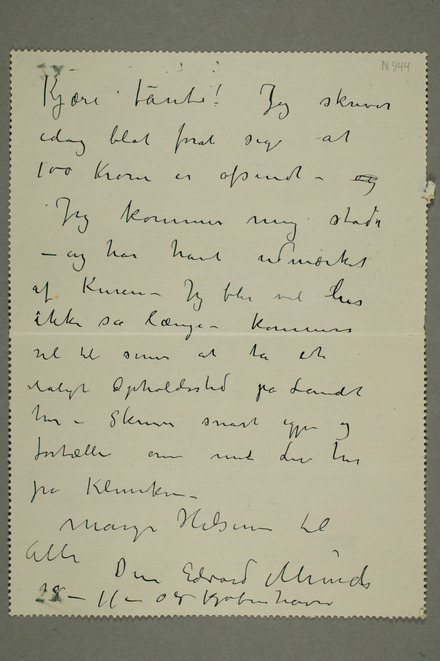 N 944
Kjære tante! Jeg skriver
idag blot forat sige at
100 Kroner er afsendt – og
Jeg kommer mig stadig
– og har havt udmærket
af Kuren – Jeg blir vel her
ikke så længe – kommer
vel til siden at ta et
roligt Opholdssted på Landet
her – Skriver snart igjen og
fortæller om mit Liv her
på Kliniken –
Mange Hilsener til
Alle
Din Edvard Munch
28 – 11 – 08 Kjøbenhavn